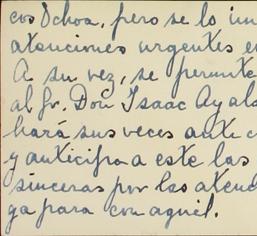 cos Ochoa, pero se lo im
atenciones urgentes e
A su vez, se permite
al Sr. Don Isaac Ayala
hará sus veces ante
y anticipa a este las
sinceras por las atenc
ga para con aquél.